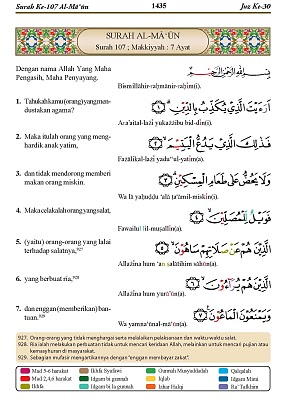 Surah Ke-107 Al-Mā‘ūn 1435 Juz Ke-30
SURAH AL-MĀ‘ŪN
Surah 107 ; Makkiyyah : 7 Ayat
Dengan nama Allah Yang Maha
Pengasih, Maha Penyayang.
بِسْمِ اللّٰهِ الرَّحْمٰنِ الرَّحِيْمِ
Bismillāhir-raḥmānir-raḥīm(i).
1. Tahukahkamu(orang)yangmen-
dustakan agama?
اَرَءَيْتَ الَّذِيْ يُكَذِّبُ بِالدِّيْنِۗ ۝١
Ara'aital-lażī yukażżibu bid-dīn(i).
2. Maka itulah orang yang meng-
hardik anak yatim,
فَذٰلِكَ الَّذِيْ يَدُعُّ الْيَتِيْمَۙ ۝٢
Fażālikal-lażī yadu‘‘ul-yatīm(a).
3. dan tidak mendorong memberi
makan orang miskin.
وَلَا يَحُضُّ عَلٰى طَعَامِ الْمِسْكِيْنِۗ ۝٣
Wa lā yaḥuḍḍu ‘alā ṭa‘āmil-miskīn(i).
4. Makacelakalahorangyangsalat,
فَوَيْلٌ لِّلْمُصَلِّيْنَۙ ۝٤
Fawailul lil-muṣallīn(a).
5. (yaitu) orang-orang yang lalai
terhadap salatnya,927
الَّذِيْنَ هُمْ عَنْ صَلَاتِهِمْ سَاهُوْنَۙ ۝٥
Allażīna hum ‘an ṣalātihim sāhūn(a).
6. yang berbuat ria,928
الَّذِيْنَ هُمْ يُرَاۤءُوْنَۙ ۝٦
Allażīna hum yurā'ūn(a).
7. dan enggan (memberikan) ban-
tuan.929
وَيَمْنَعُوْنَ الْمَاعُوْنَ ۝٧
Wa yamna‘ūnal-mā‘ūn(a).
927. Orang-orang yang tidak menghargai serta melalaikan pelaksanaan dan waktu-waktu salat.
928. Ria ialah melakukan perbuatan tidak untuk mencari keridaan Allah, melainkan untuk mencari pujian atau
kemasyhuran di masyarakat.
929. Sebagian mufasir mengartikannya dengan "enggan membayar zakat".
Mad 5-6 harakat Ikhfā Syafawi Gunnah Musyaddadah Qalqalah
Mad 2,4,6 harakat Idgam bi gunnah Iqlab Idgam Mimi
Ikhfa Idgam bila gunnah Izhar Halqi Ra' Tafkhim